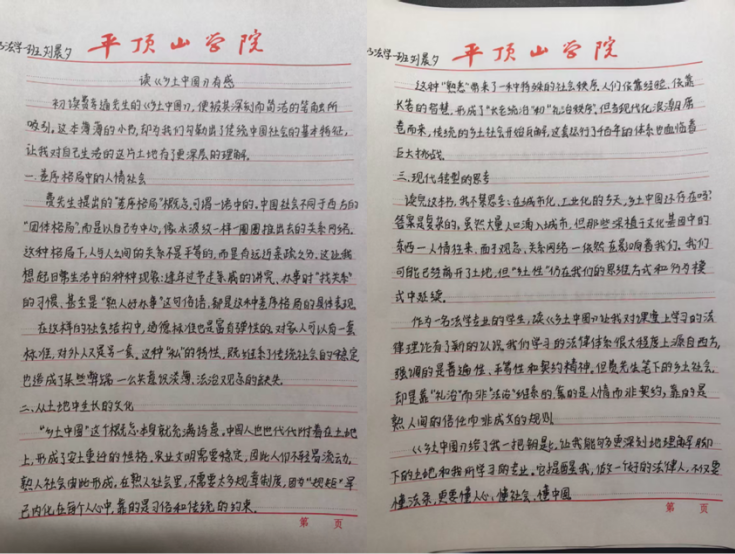 平顶山学院
法学一班 刘晨夕
读《乡土中国》有感
初读费孝通先生的《乡土中国》，便被其深刻而简洁的笔触所
吸引。这本薄薄的小书，却为我们勾勒出了传统中国社会的基本特征，
让我对自己生活的这片土地有了更深层的理解。
一.差序格局中的人情社会
费先生提出的"差序格局"概念，可谓一语中的，中国社会不同于西方的
"团体格局"，而是以自己为中心，像水波纹一样一圈圈推出去的关系网络。
这种格局下，人与人之间的关系不是平等的，而是有远近亲疏之分，这让我
想起日常生活中的种种现象：逢年过节走亲戚的讲究、办事时"找关系"
的习惯、甚至是"熟人好办事"这句俗语，都是这种差序格局的具体表现
在这样的社会结构中，道德标准也是富有弹性的，对家人可以有一套
标准，对外人又是另一套。这种"私"的特性，既维系了传统社会的稳定
也造成了某些弊端 一公共意识淡薄，法治观念的缺失
二、从土地中生长的文化
"乡土中国"这个概念本身就充满诗意，中国人世世代代附着在土地
上，形成了安土重迁的性格。农业文明需要稳定，因此人们不轻易流动，
熟人社会由此形成。在熟人社会里，不需要太多规章制度，因为"规矩"早
已内化在每个人心中，靠的是习俗和传统的约束。
第 页
平顶山学院
法学一班 刘晨夕
这种"熟悉"带来了一种特殊的社会秩序，人们依靠经验、依靠
长老的智慧，形成了"长老统治"和"礼治秩序"。但当现代化浪潮席
卷而来，传统的乡土社会开始瓦解，这套运行了千百年的体系也面临着
巨大挑战。
三.现代转型的思考
读完这本书，我不禁思考：在城市化、工业化的今天，乡土中国还存在吗？
答案是复杂的，虽然大量人口涌入城市，但那些深植于文化基因中的
东西一人情往来、面子观念、关系网络一依然在影响着我们，我们
可能已经离开了土地，但"乡土性"仍在我们的思维方式和行为模
式中延续。
作为一名法学专业的学生，读《乡土中国》让我对课堂上学习的法
律理论有了新的认识，我们学习的法律体系很大程度上源自西方，
强调的是普遍性、平等性和契约精神，但费先生笔下的乡土社会，
却是靠"礼治"而非"法治"维系的，靠的是人情而非契约，靠的是
熟人间的信任而非成文的规则
《乡土中国》给了我一把钥匙，让我能够更深刻地理解脚
下的土地和我所学习的专业。它提醒我，做一个好的法律人，不仅要
懂法条，更要懂人心、懂社会、懂中国
第 页